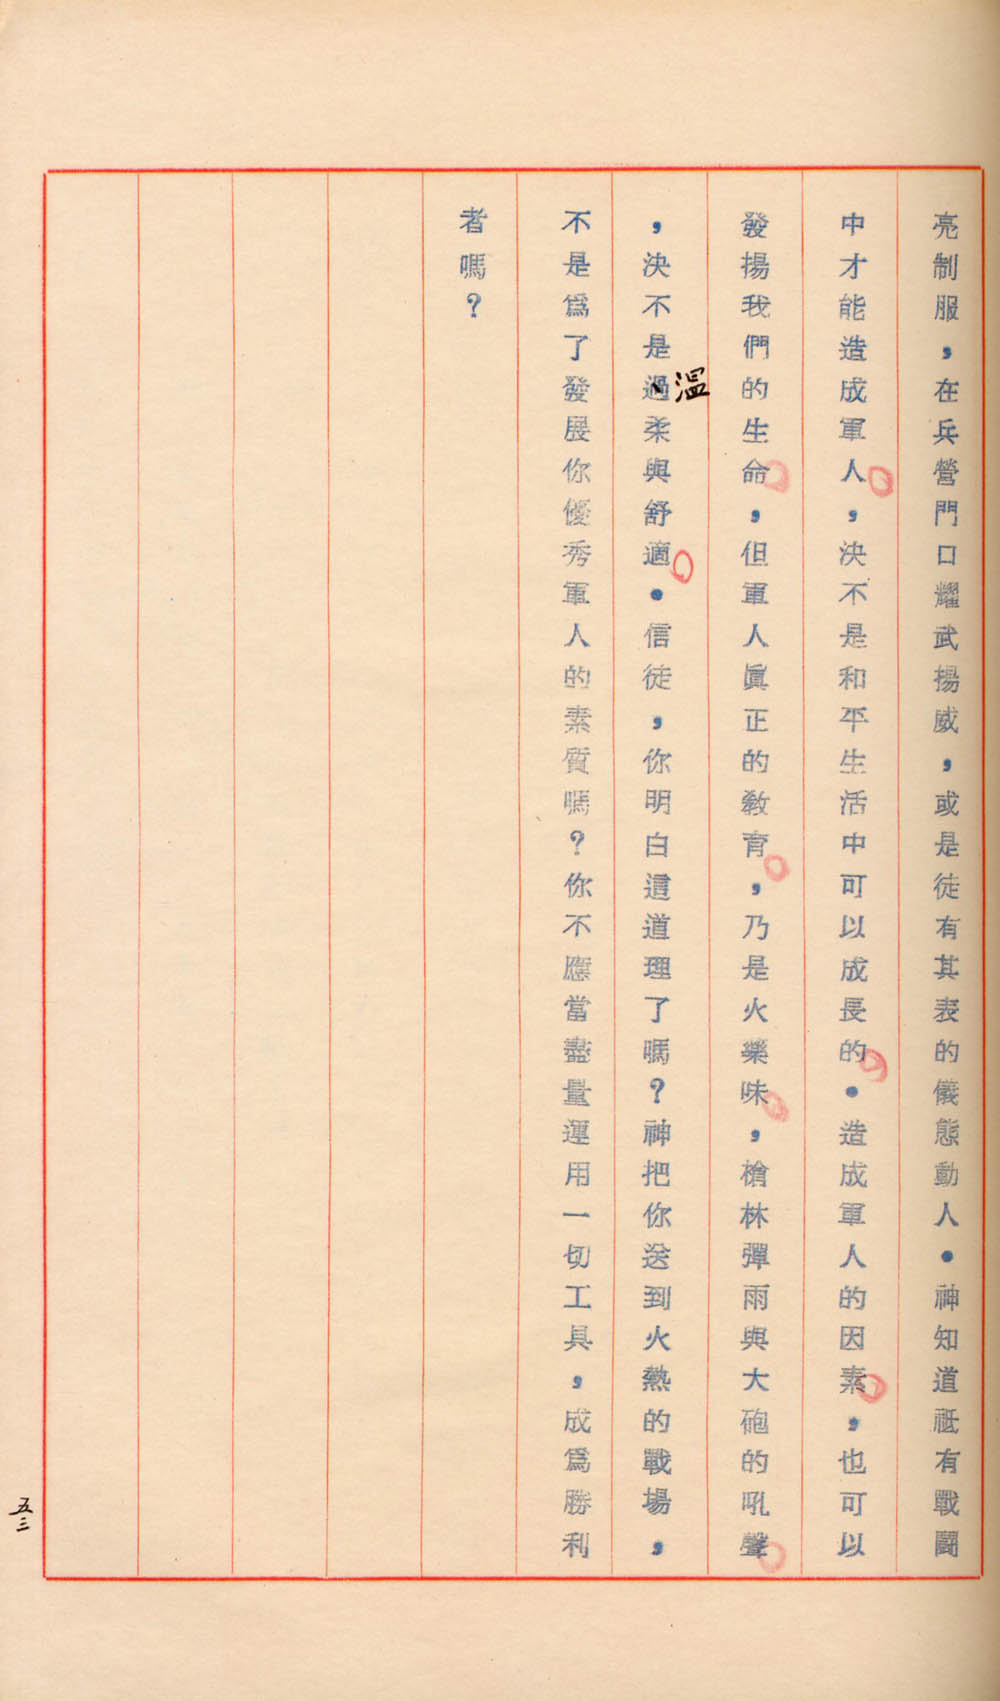 亮制服，在兵營門口耀武揚威，或是徒有其表的儀態動人．神知道祗有戰鬭
中才能造成軍人，決不是和平生活中可以成長的．造成軍人的因素，也可以
發揚我們的生命，但軍人眞正的教育，乃是火藥味，槍林彈雨與大砲的吼聲
，決不是過柔與舒適．信徒，你明白這道理了嗎？神把你送到火熱的戰場，
溫
不是爲了發展你優秀軍人的素質嗎？你不應當盡量運用一切工具，成爲勝利
者嗎？
五三